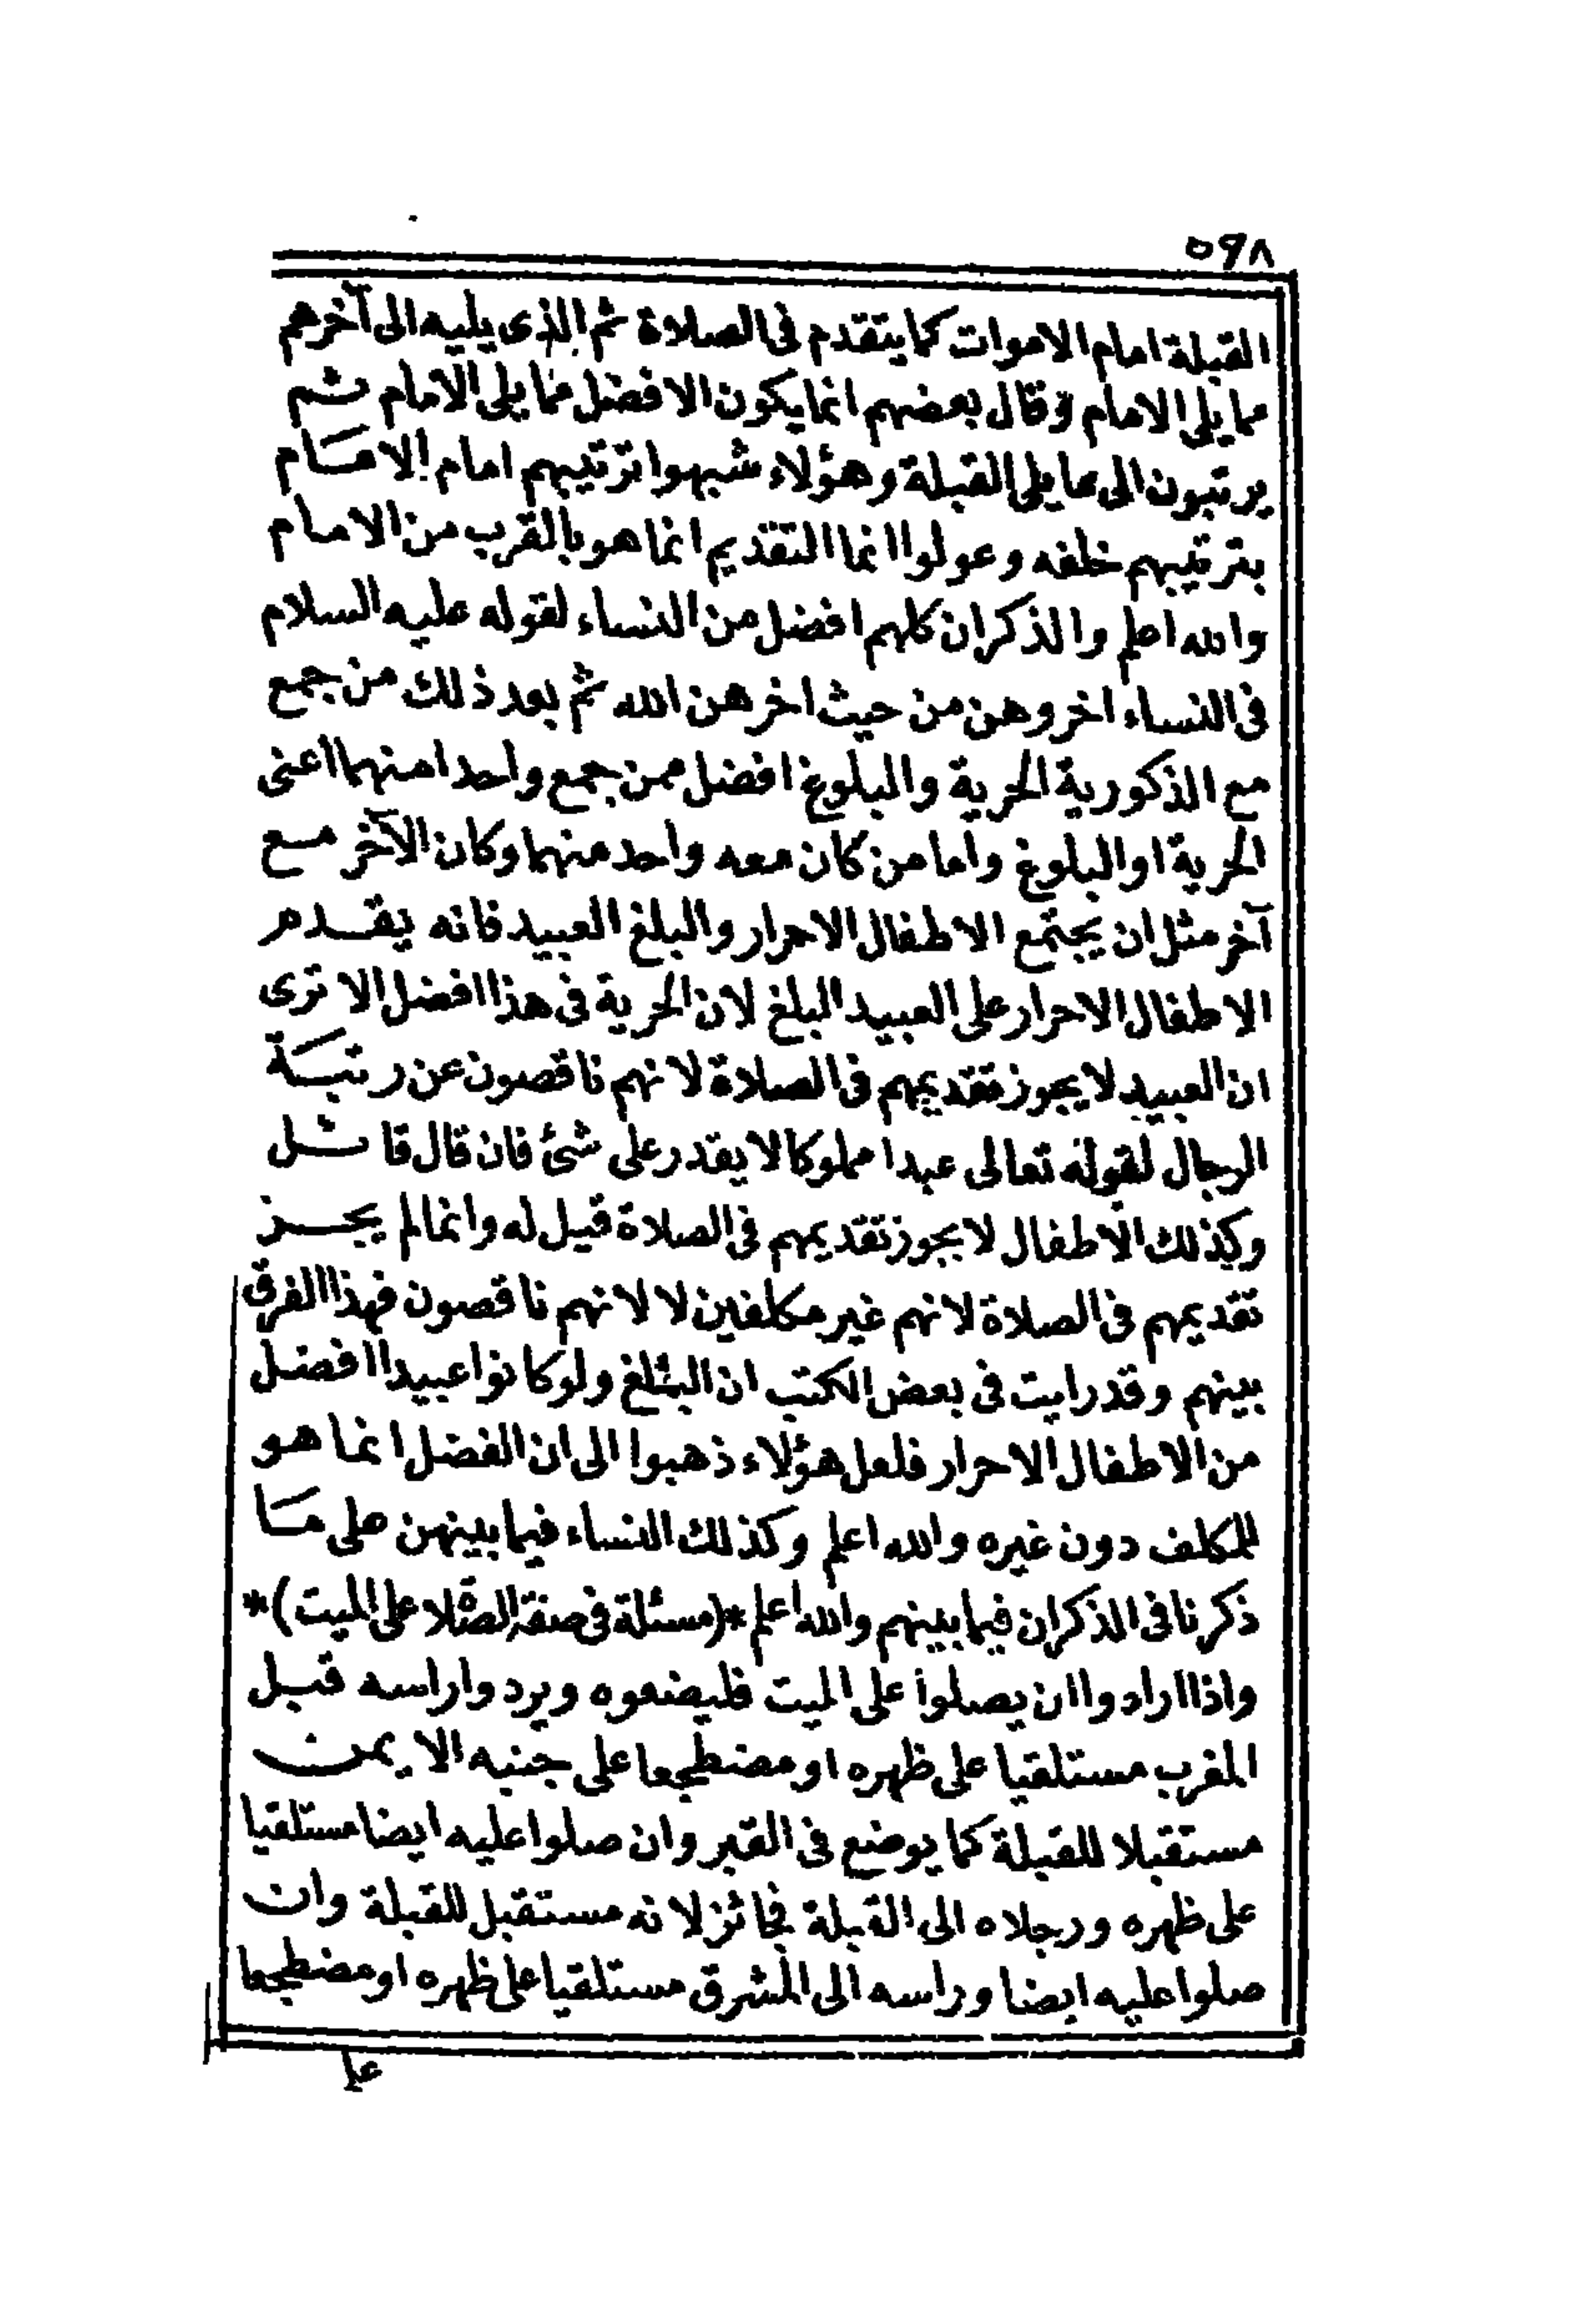 ٥٩٨
القبلة امام الاموات كما يتقدم فى الصلاة ثم الذى يليه الى آخرهم
مما يلى الامام وقال بعضهم انما يكون الافضل مما يلى الامام ثم
يرتبون الى ما يلى القبلة وهؤلاء شبهوا ترتيبهم امام الامام
بترتيبهم خلفه وعولوا انما التقديم انما هو بالقرب من الامام
والله اعلم والذكران كلهم افضل من النساء لقوله عليه السلام
فى النساء اخروهن من حيث اخرهن الله ثم بعد ذلك من جمع
مع الذكورية الحرية والبلوغ افضل ممن جمع واحدا منهما اعنى
الحرية او البلوغ واما من كان معه واحد منهما وكان الآخر مع
آخر مثل ان يجتمع الاطفال الاحرار والبلغ العبيد فانه يقدم
الاطفال الاحرار على العبيد البلغ لان الحرية فى هذا افضل الا ترى
ان العبيد لا يجوز تقديمهم فى الصلاة لانهم ناقصون عن رتبة
الرجال لقوله تعالى عبدا مملوكا لا يقدر على شئ فان قال قائل
وكذلك الاطفال لا يجوز تقديمهم فى الصلاة قيل له وانما لم يجز
تقديمهم فى الصلاة لانهم غير مكلفين لا لانهم ناقصون فهذا الفرق
بينهم وقد رايت فى بعض الكتب ان البلغ ولو كانوا عبيدا افضل
من الاطفال الاحرار فلعل هؤلاء ذهبوا الى ان الفضل انما هو
للمكلف دون غيره والله اعلم وكذلك النساء فيما بينهن على ما
ذكرنا فى الذكران فيما بينهم والله اعلم *(مسئلة فى صفة الصلاة على الميت)*
واذا ارادوا ان يصلوا على الميت فليضعوه ويردوا راسه قبل
المغرب مستلقيا على ظهره او مضطجعا على جنبه الايمن
مستقبلا للقبلة كما يوضع فى القبر وان صلوا عليه ايضا مستلقيا
على ظهره ورجلاه الى القبلة فجائز لانه مستقبل للقبلة وان
صلوا عليه ايضا وراسه الى المشرق مستلقيا على ظهره او مضطجعا
على